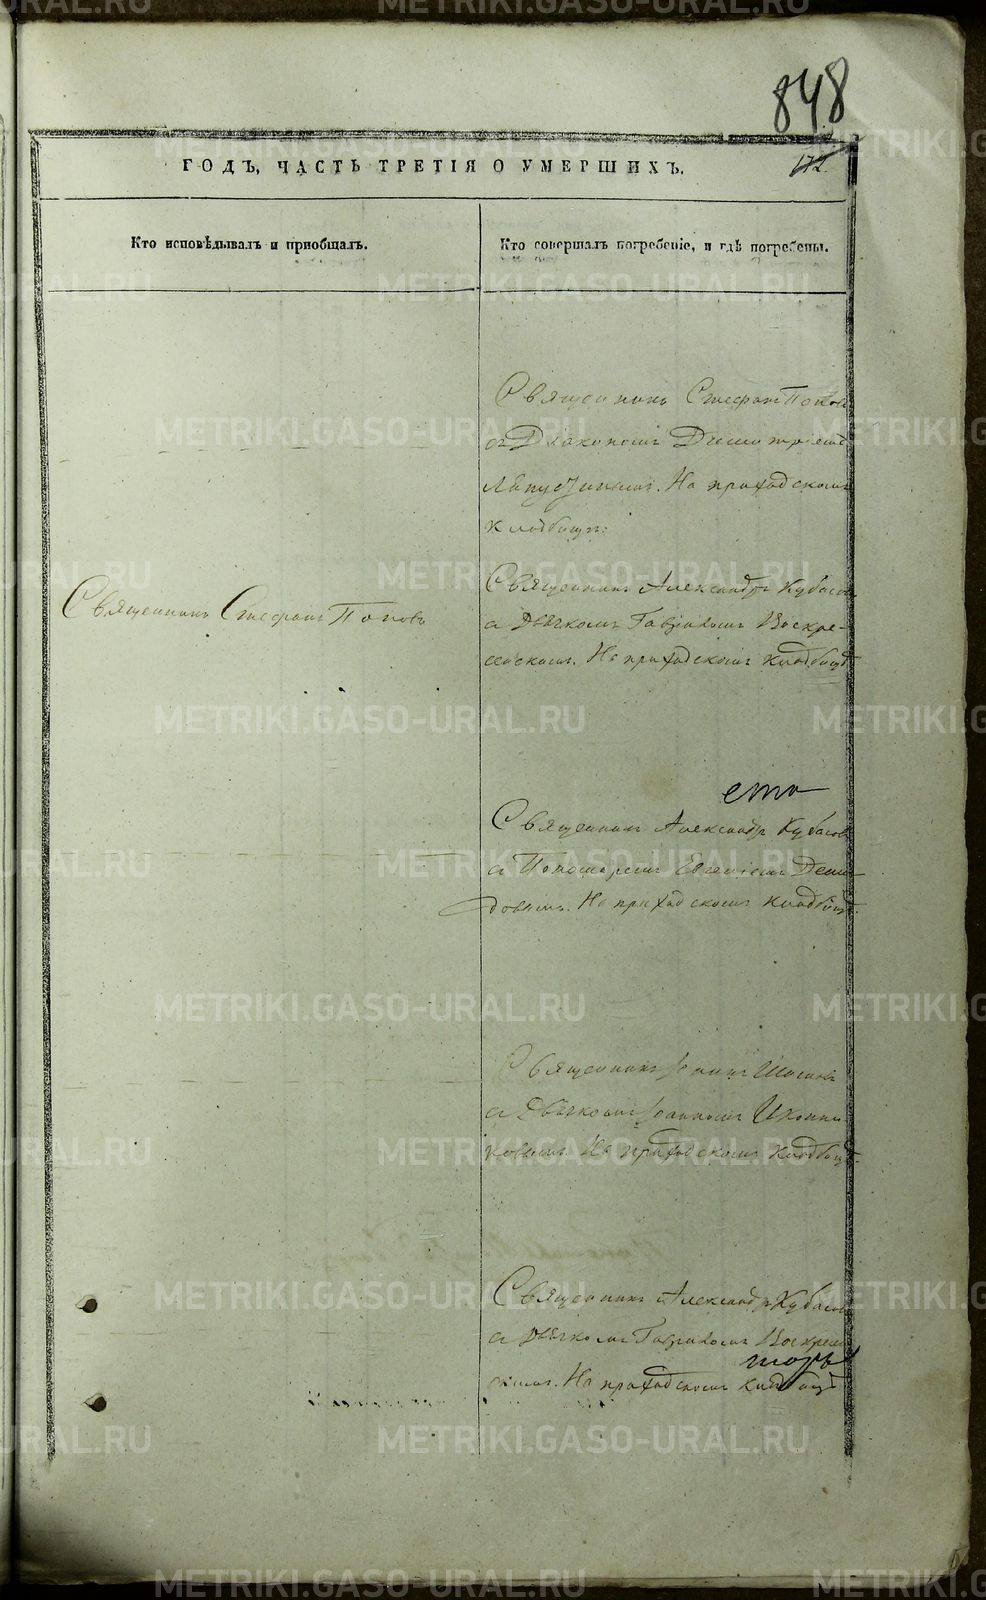 848
172.
ГОДЪ, ЧАСТЬ ТРЕТІЯ О УМЕРШИХЪ.
Кто исповѣдывалъ и пріобщалъ.
Кто совершалъ погребеніе, и гдѣ погребены.
Священникъ Стефанъ Поповъ
съ Діакономъ Димитріемъ
На приходскомъ
кладбищѣ.
Священникъ Стефанъ Поповъ
Священникъ Александръ Кубасовъ
съ Дьячкомъ Гавріиломъ Воскре-
сенскимъ. На приходскомъ кладбищѣ
ста
Священникъ Александръ Кубасовъ
съ Пономаремъ Евгеніемъ Деми-
довымъ. На приходскомъ кладбищѣ.
Священникъ Іоаннъ
съ Дьячкомъ Іоанномъ Иконни-
ковымъ. На приходскомъ кладбищѣ.
Священникъ Александръ Кубасовъ
съ Дьячкомъ Гавріиломъ Воскресен-
скимъ. На приходскомъ кладбищѣ
METRIKI.GASO-URAL.RU